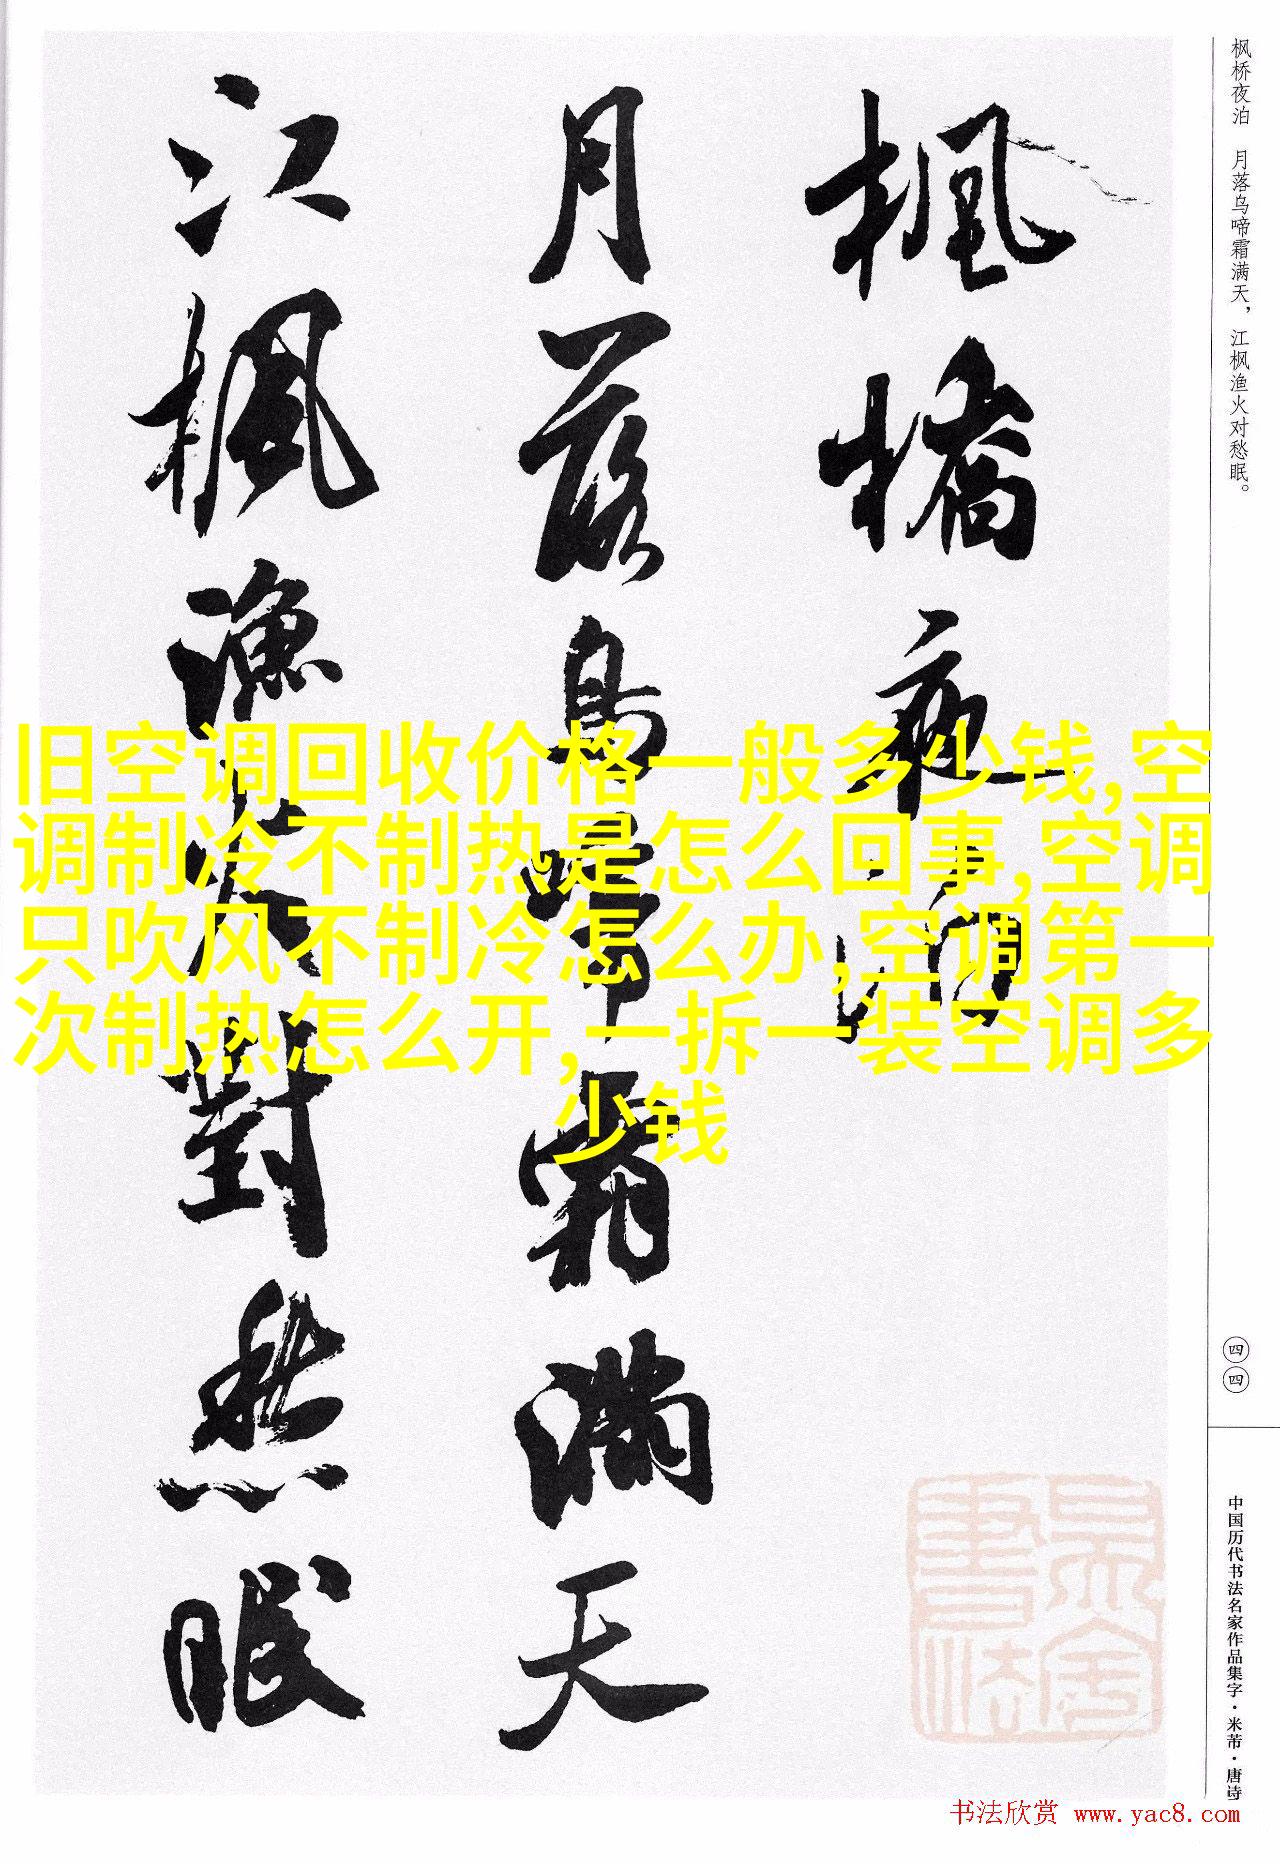 枫桥夜泊　月落乌啼霜满天，江枫渔火对愁眠。
楓橋夜泊
月落烏啼霜滿天
江楓漁火對愁眠
旧空调回收价格一般多少钱,空
调制冷不制热是怎么回事,空调
只吹风不制冷怎么办,空调第一
次制热怎么开,一拆一装空调多
少钱
四四
中国历代书法名家作品集字·米芾·唐诗
书法欣赏 www.yac8.com